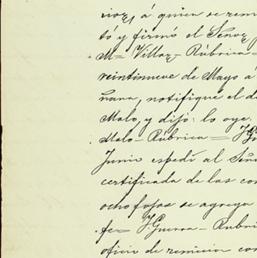 á quien se rem
tó y firmó el Señor
M= Villar - Rúbrica =
veintinueve de Mayo á
nana, notifiqué el d
Malo, y dijo: lo oye.
Malo - Rúbrica =
Junio espedí al Seño
certificada de las con
ocho fojas se agrega
fe = J. Guerra - Rubri
oficio de remision con